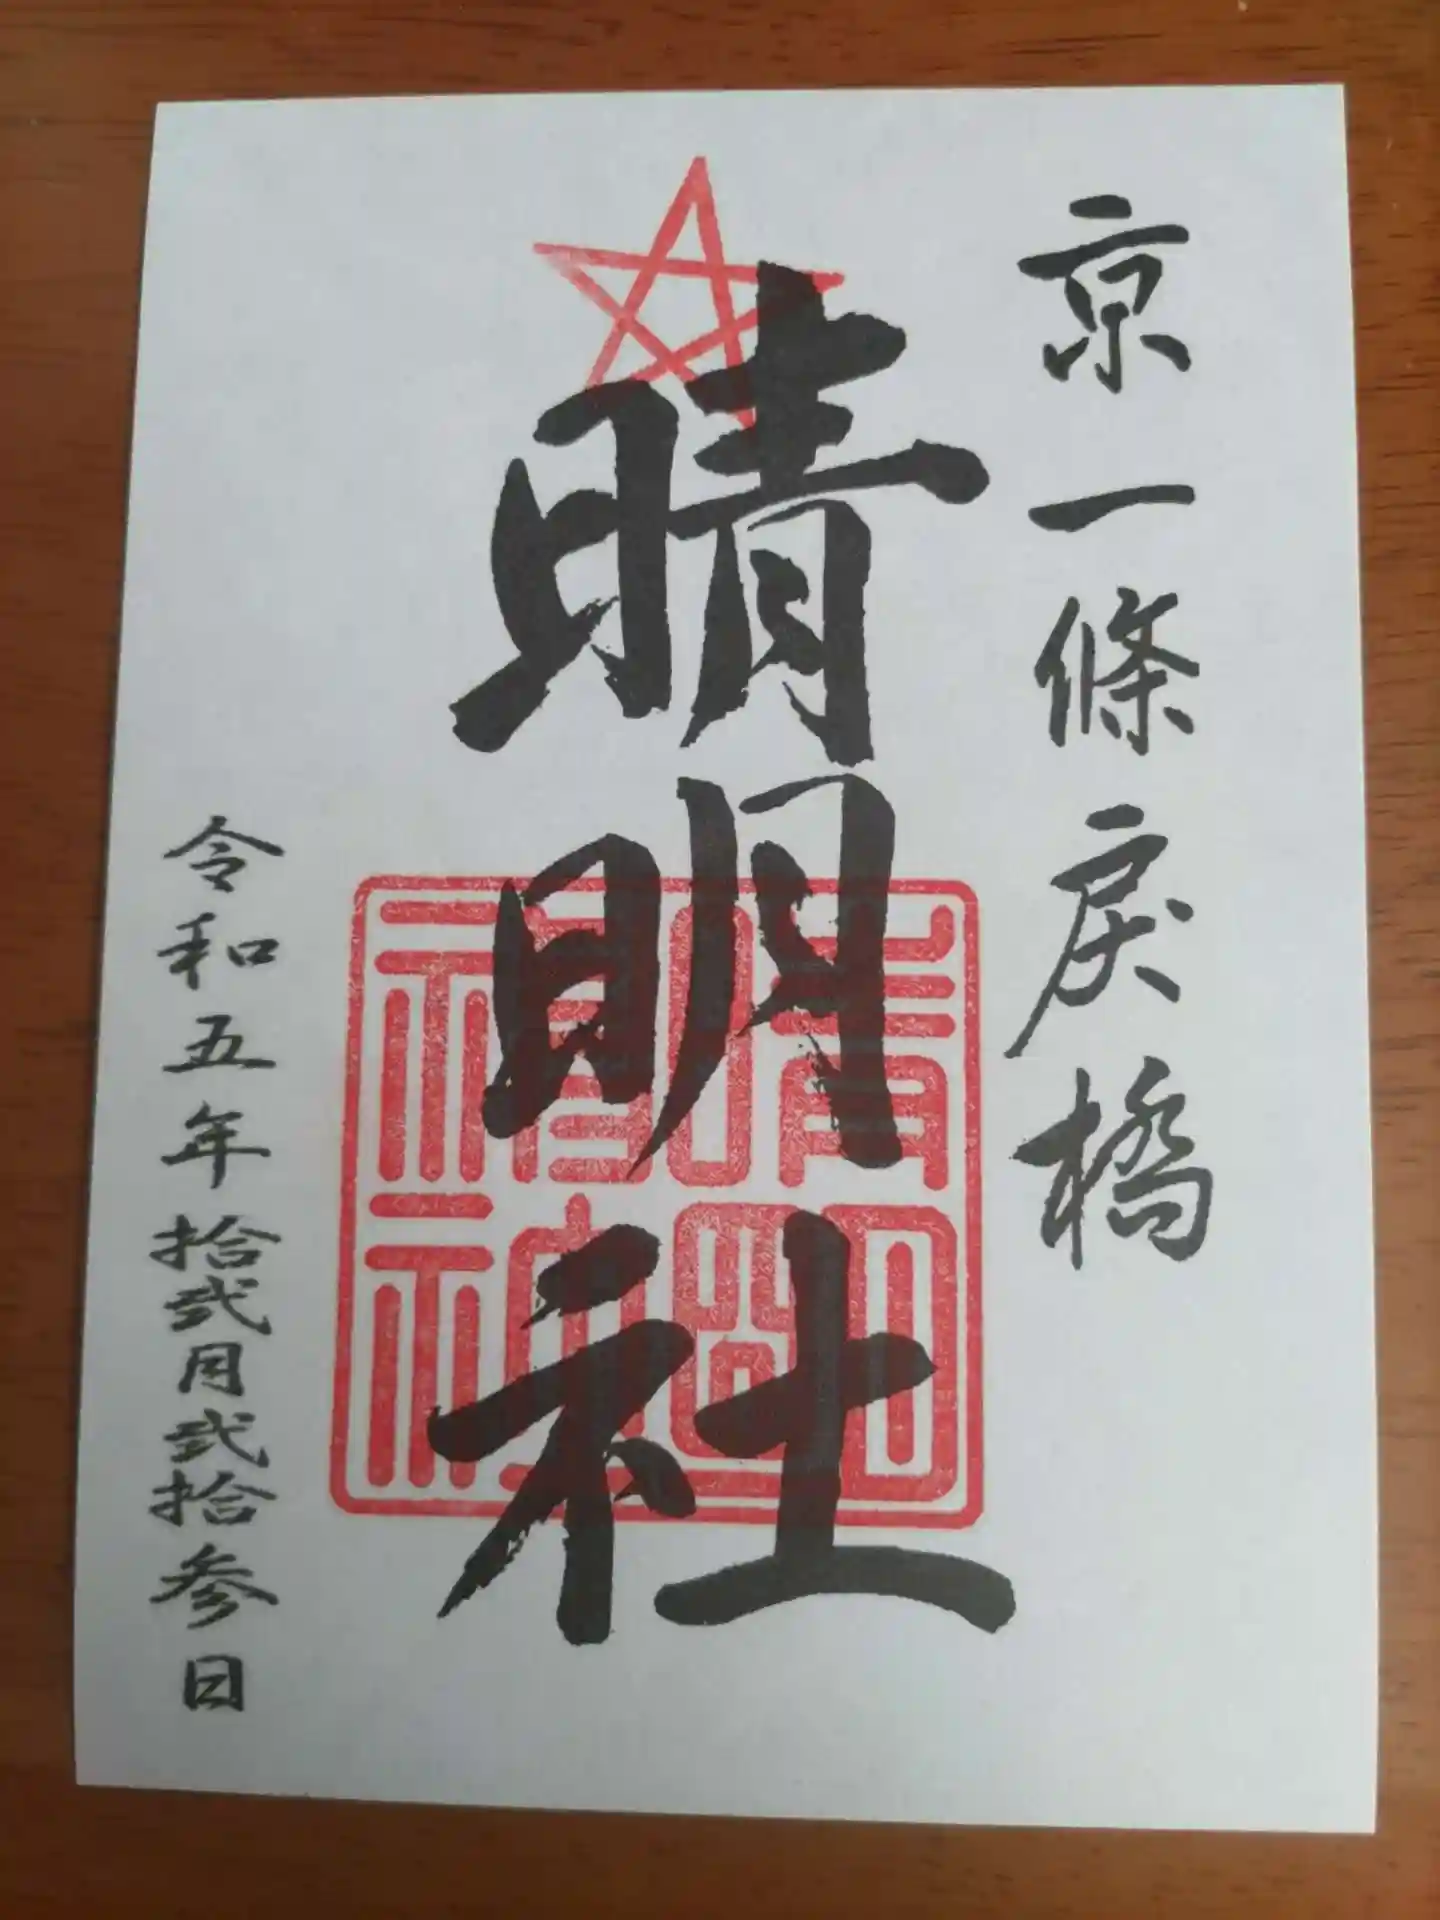 京一條戻橋
晴明社
令和五年拾弐月弐拾参日